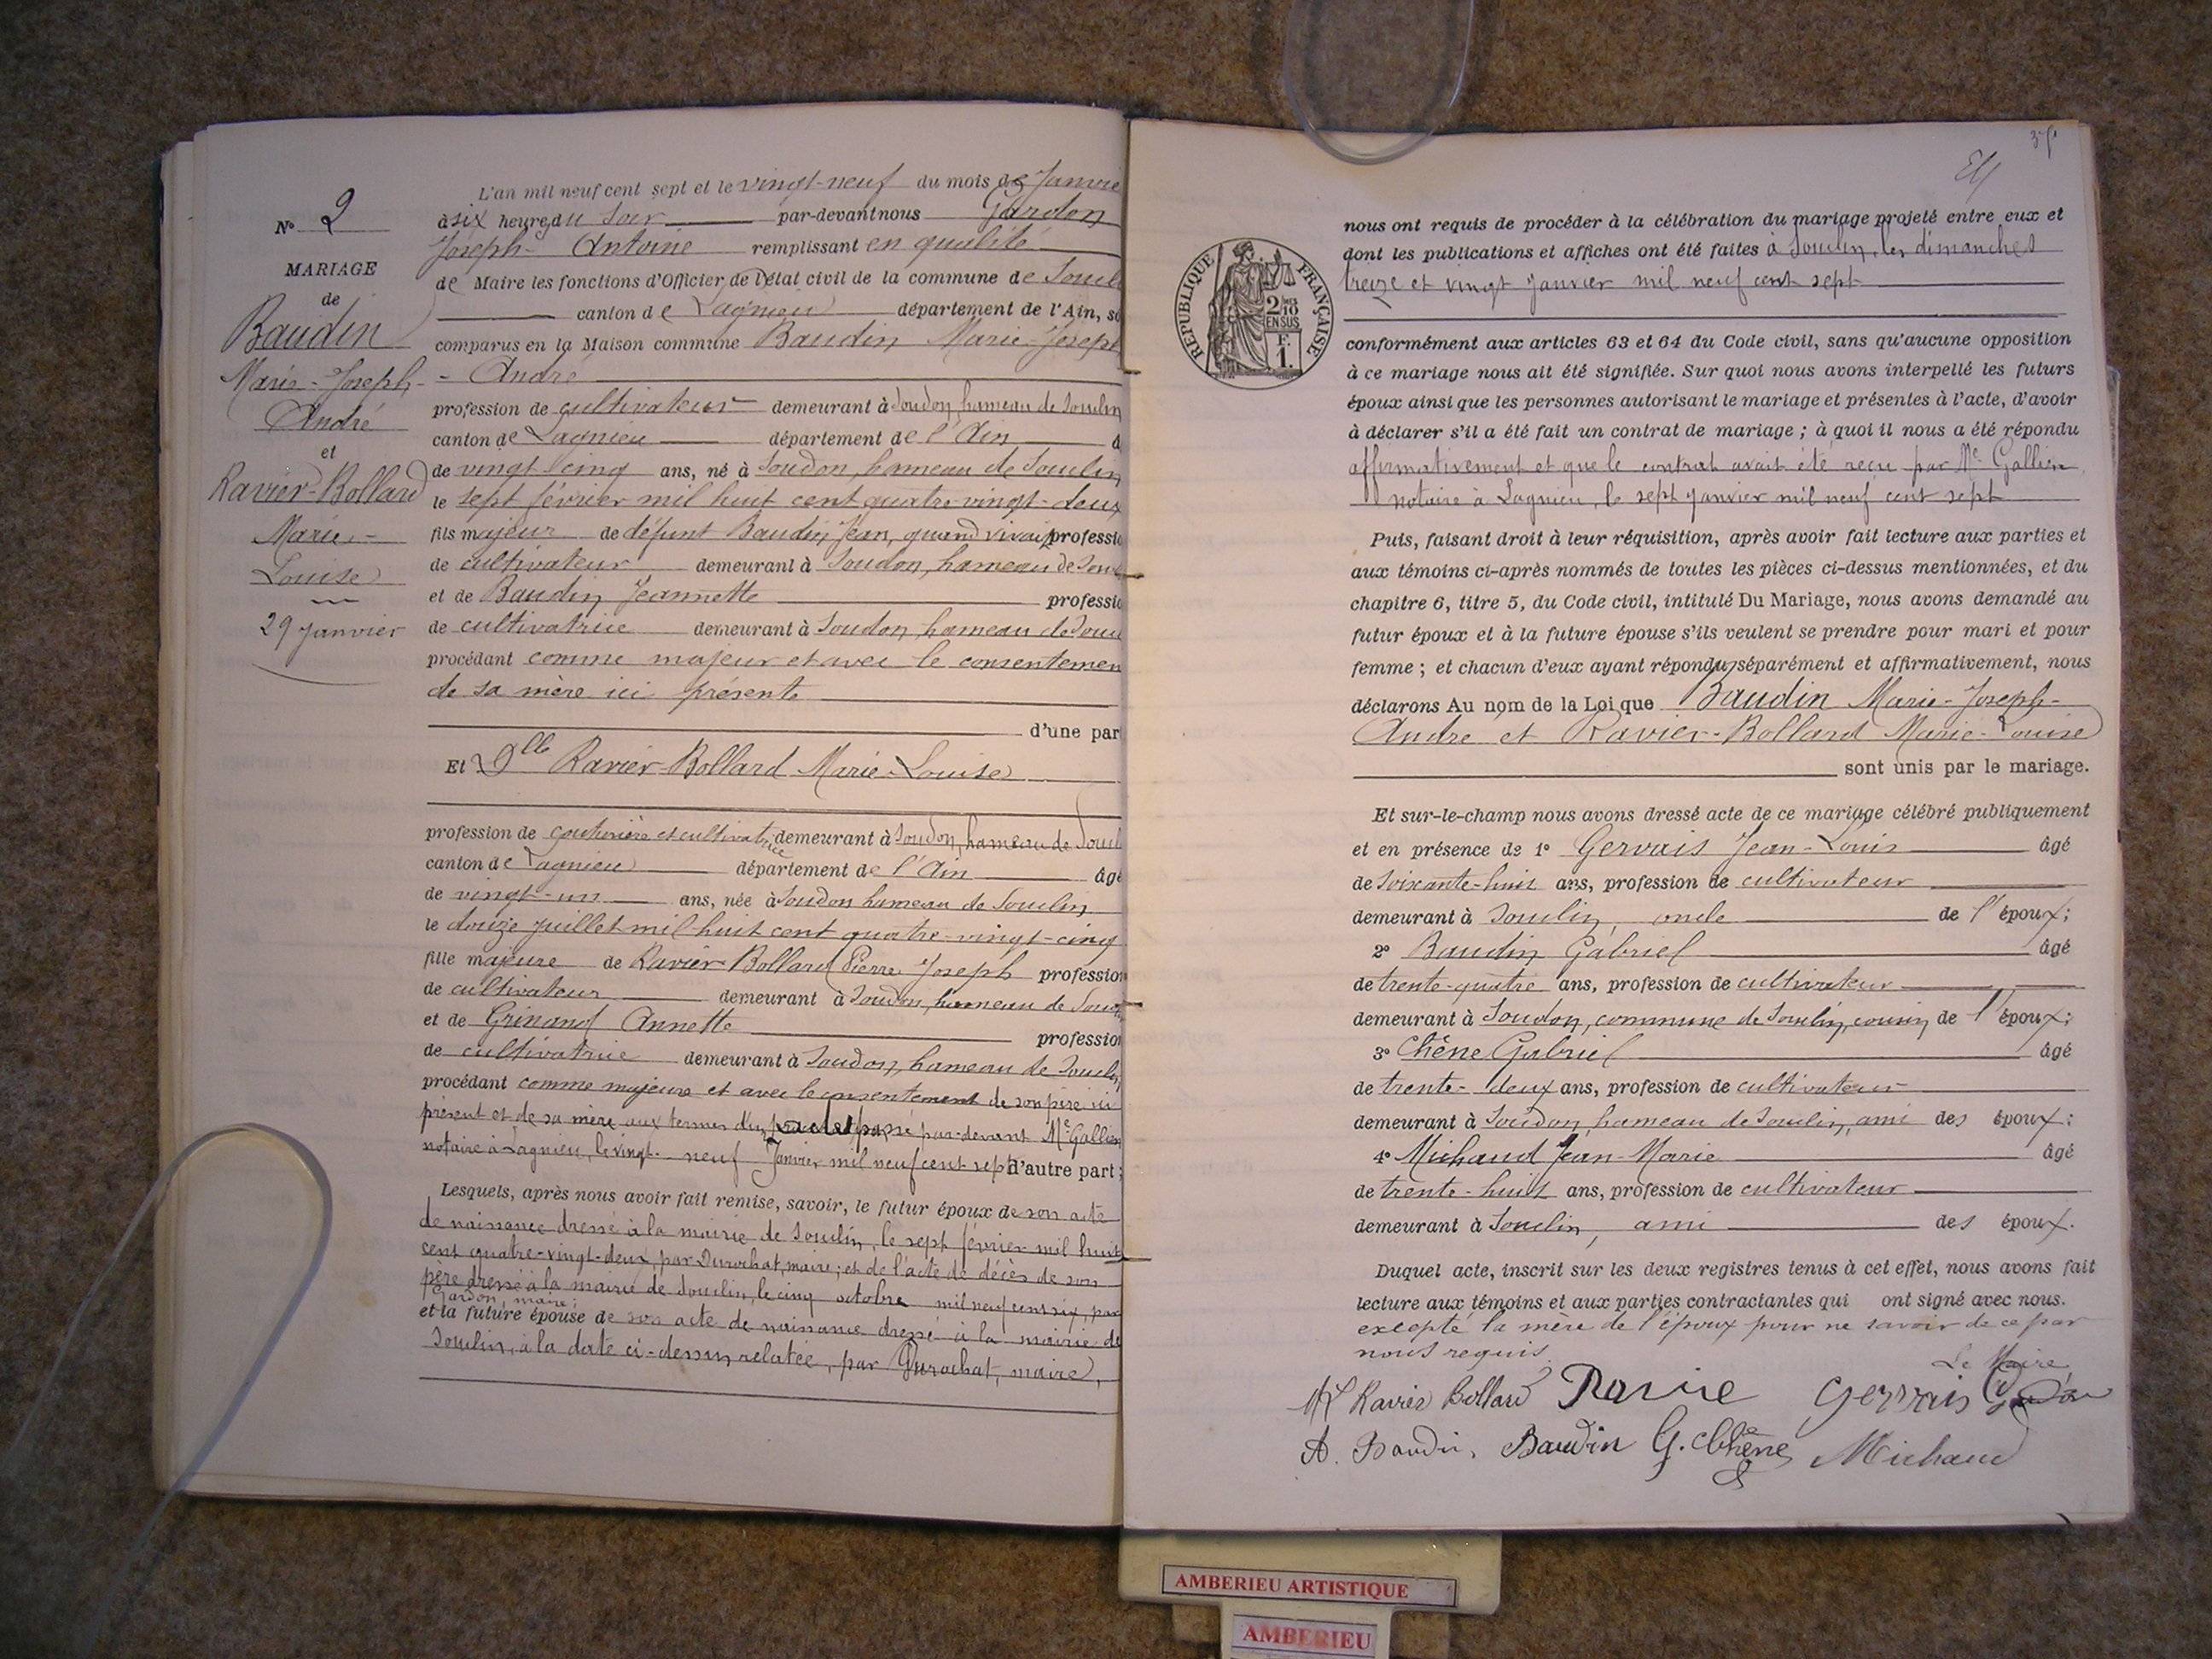 N° 2
MARIAGE
de
Baudin
Marie-Joseph-
André
et
Ravier-Bollard
Marie-
Louise
29 Janvier
L'an mil neuf cent sept et le vingt-neuf du mois de Janvie
à six heure du soir par-devant nous Gardon
Joseph-Antoine remplissant en qualité
de Maire les fonctions d'Officier de l'état civil de la commune de Soucli
canton de Lagnieu département de l'Ain, so
comparus en la Maison commune Baudin Marie-Joseph
- André
profession de cultivateur demeurant à Soudon, hameau de Souclin
canton de Lagnieu département de l'Ain â
de vingt-cinq ans, né à Soudon, hameau de Souclin
le sept février mil huit cent quatre-vingt-deux
fils majeur de défunt Baudin Jean, quand vivait professio
de cultivateur demeurant à Soudon, hameau de Sou
et de Baudin Jeannette professio
de cultivatrice demeurant à Soudon, hameau de Souc
procédant comme majeur et avec le consentemen
de sa mère ici présente
d'une par
Et Dlle Ravier-Bollard Marie-Louise
profession de couturière et cultivatrice demeurant à Soudon, hameau de Soucl
canton de Lagnieu département de l'Ain âgé
de vingt-un ans, née à Soudon hameau de Souclin
le douze juillet mil huit cent quatre-vingt-cinq
fille majeure de Ravier-Bollard Pierre Joseph profession
de cultivateur demeurant à Soudon, hameau de Souc
et de Grinand Annette profession
de cultivatrice demeurant à Soudon, hameau de Souclin
procédant comme majeure et avec le consentement de son père ici
présent et de sa mère aux termes d'un acte passé par-devant Me Gallien
notaire à Lagnieu, le vingt-neuf Janvier mil neuf cent sept d'autre part ;
Lesquels, après nous avoir fait remise, savoir, le futur époux de son acte
de naissance dressé à la mairie de Souclin, le sept février mil huit
cent quatre-vingt-deux, par Durochat, maire ; et de l'acte de décès de son
père dressé à la mairie de Souclin, le cinq octobre mil neuf cent six, par
Gardon, maire ;
et la future épouse de son acte de naissance dressé à la mairie de
Souclin, à la date ci-dessus relatée, par Durochat, maire,
RÉPUBLIQUE FRANÇAISE
2/10
EN SUS
F.
1.
nous ont requis de procéder à la célébration du mariage projeté entre eux et
dont les publications et affiches ont été faites à Souclin, les dimanches
treize et vingt janvier mil neuf cent sept
conformément aux articles 63 et 64 du Code civil, sans qu'aucune opposition
à ce mariage nous ait été signifiée. Sur quoi nous avons interpellé les futurs
époux ainsi que les personnes autorisant le mariage et présentes à l'acte, d'avoir
à déclarer s'il a été fait un contrat de mariage ; à quoi il nous a été répondu
affirmativement et que le contrat avait été reçu par Me Gallien,
notaire à Lagnieu, le sept janvier mil neuf cent sept
Puis, faisant droit à leur réquisition, après avoir fait lecture aux parties et
aux témoins ci-après nommés de toutes les pièces ci-dessus mentionnées, et du
chapitre 6, titre 5, du Code civil, intitulé Du Mariage, nous avons demandé au
futur époux et à la future épouse s'ils veulent se prendre pour mari et pour
femme ; et chacun d'eux ayant répondu séparément et affirmativement, nous
déclarons Au nom de la Loi que Baudin Marie-Joseph-
André et Ravier-Bollard Marie-Louise
sont unis par le mariage.
Et sur-le-champ nous avons dressé acte de ce mariage célébré publiquement
et en présence de 1° Gervais Jean-Louis âgé
de soixante-huit ans, profession de cultivateur
demeurant à Souclin, oncle de l'époux ;
2° Baudin Gabriel âgé
de trente-quatre ans, profession de cultivateur
demeurant à Soudon, commune de Souclin, cousin de l'époux ;
3° Chêne Gabriel âgé
de trente-deux ans, profession de cultivateur
demeurant à Soudon, hameau de Souclin, ami des époux ;
4° Michaud Jean-Marie âgé
de trente-huit ans, profession de cultivateur
demeurant à Souclin, ami des époux.
Duquel acte, inscrit sur les deux registres tenus à cet effet, nous avons fait
lecture aux témoins et aux parties contractantes qui ont signé avec nous.
excepté la mère de l'époux pour ne savoir de ce par
nous requis.
Le Maire
ML Ravier Bollard Ravier Gervais Gardon
A. Baudin, Baudin G. Chêne Michaud
AMBERIEU ARTISTIQUE
AMBERIEU